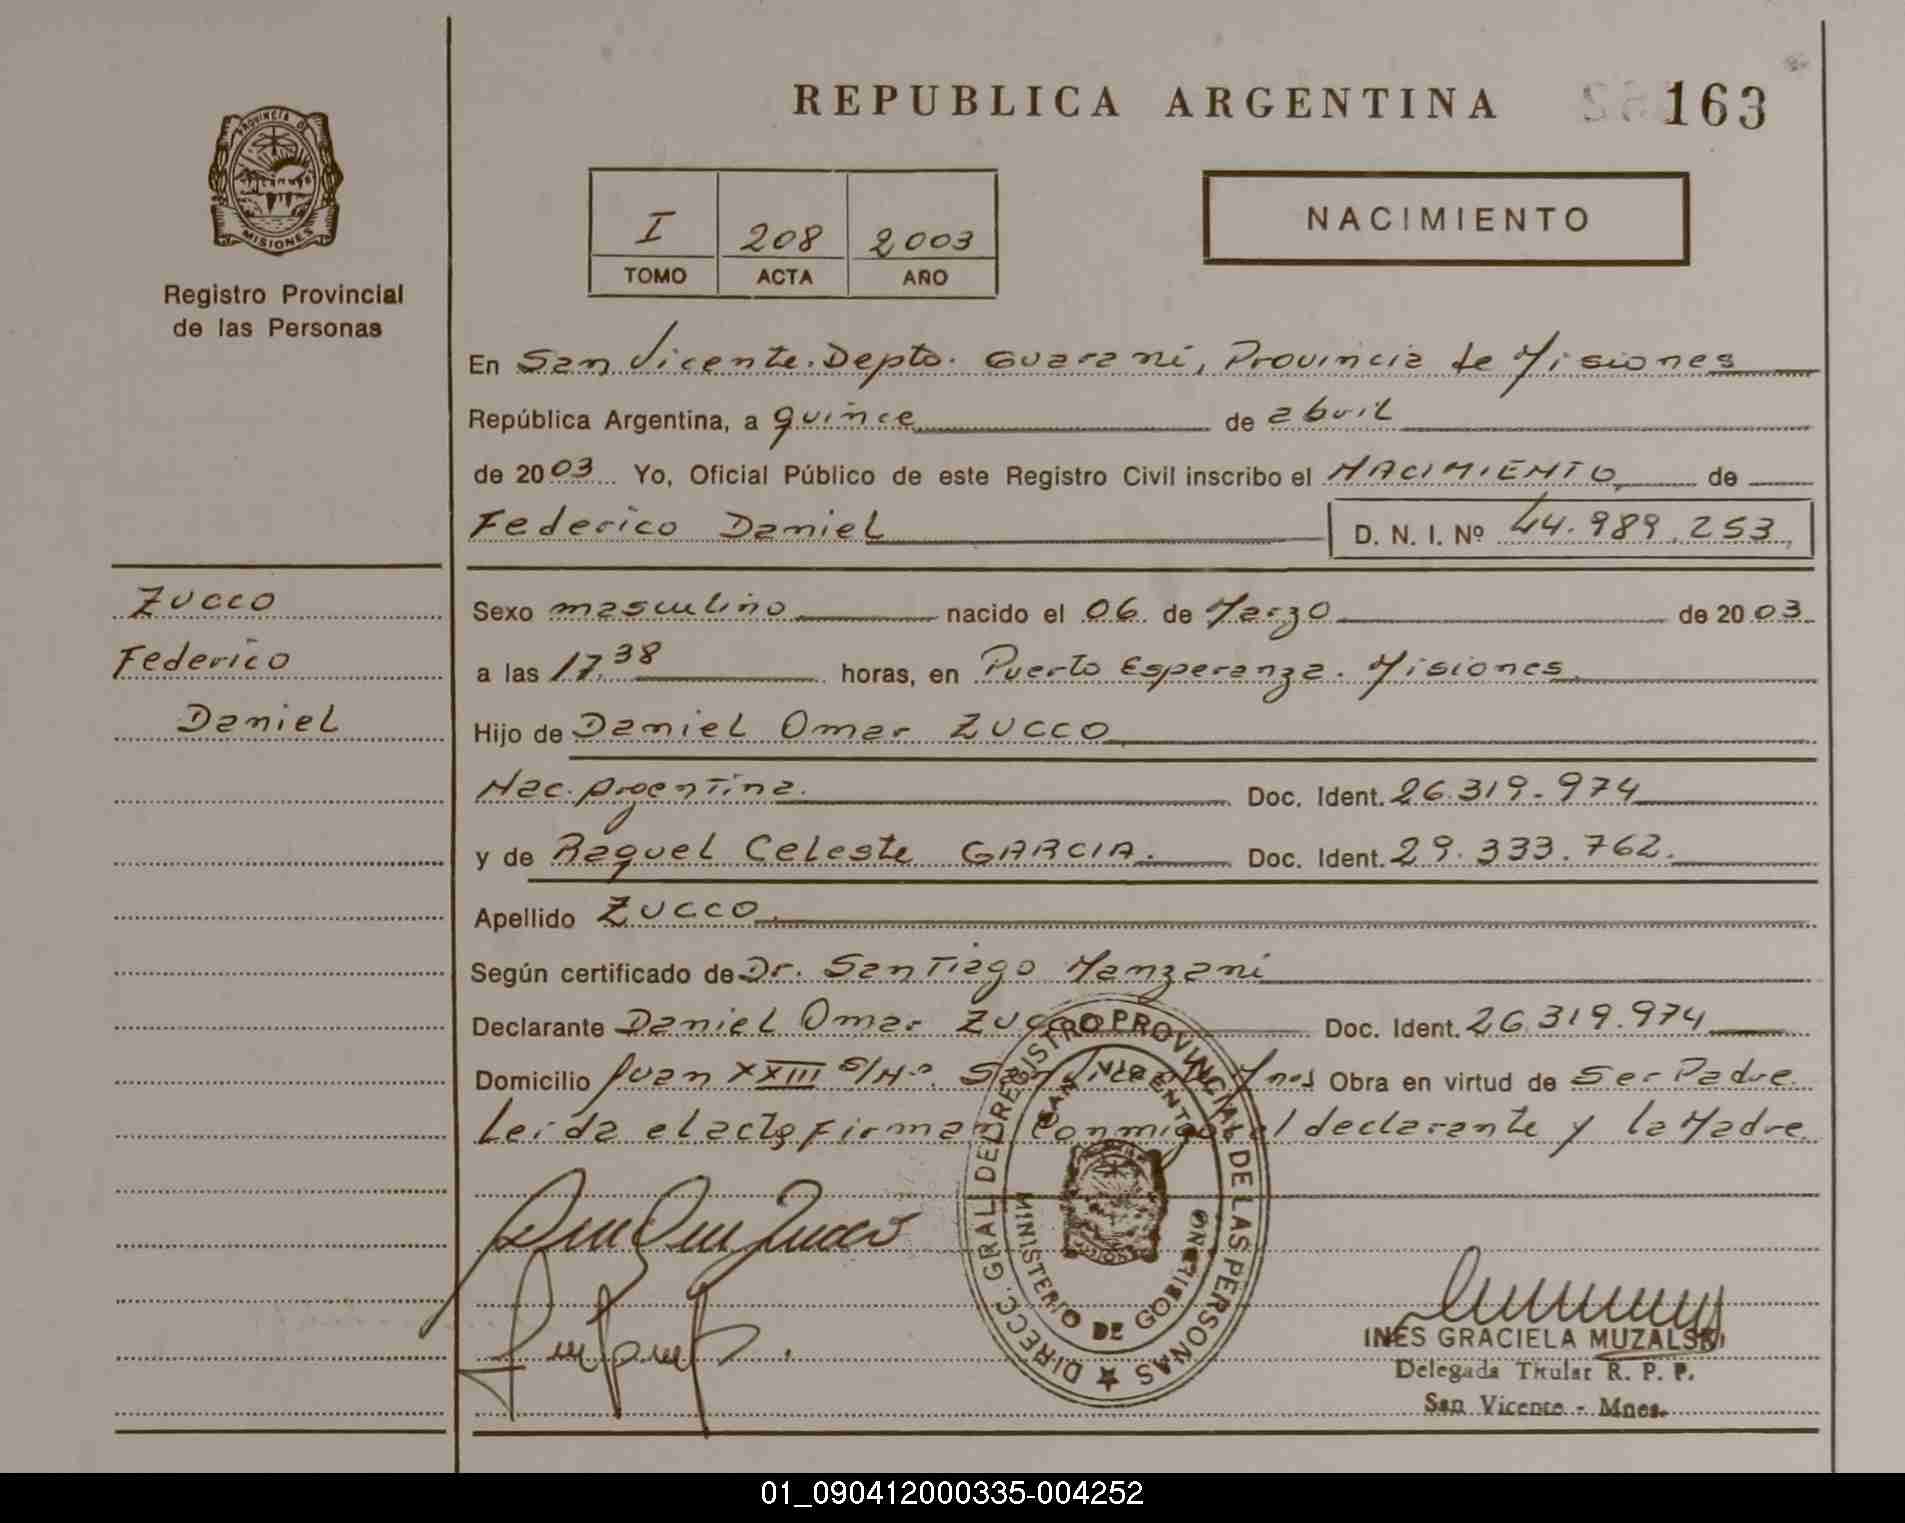 REPUBLICA ARGENTINA
163
PROVINCIA D
MISIONES
Registro Provincial
de las Personas
I 208 2003
TOMO ACTA AÑO
NACIMIENTO
En San Vicente. Depto. Guaraní, Provincia de Misiones
República Argentina, a quince de abril
de 2003 Yo, Oficial Público de este Registro Civil inscribo el NACIMIENTO de
Federico Daniel D. N. I. Nº 44.989.253
Zucco
Federico
Daniel
Sexo masculino nacido el 06 de Marzo de 2003
a las 17,38 horas, en Puerto Esperanza. Misiones
Hijo de Daniel Omar ZUCCO
Nac. Argentina. Doc. Ident. 26.319.974
y de Raquel Celeste GARCIA. Doc. Ident. 29.333.762.
Apellido ZUCCO.
Según certificado de Dr. Santiago Manzani
Declarante Daniel Omar ZUCCO Doc. Ident. 26.319.974
Domicilio Juan XXIII S/Nº. San Vicente Mnes Obra en virtud de Ser Padre.
Leída el acta firman conmigo el declarante y la Madre.
DIRECC. GRAL. DEL REGISTRO PROVINCIAL DE LAS PERSONAS
SAN VICENTE
MINISTERIO DE GOBIERNO
INES GRACIELA MUZALSKI
Delegada Titular R. P. P.
San Vicente - Mnes.
01_090412000335-004252